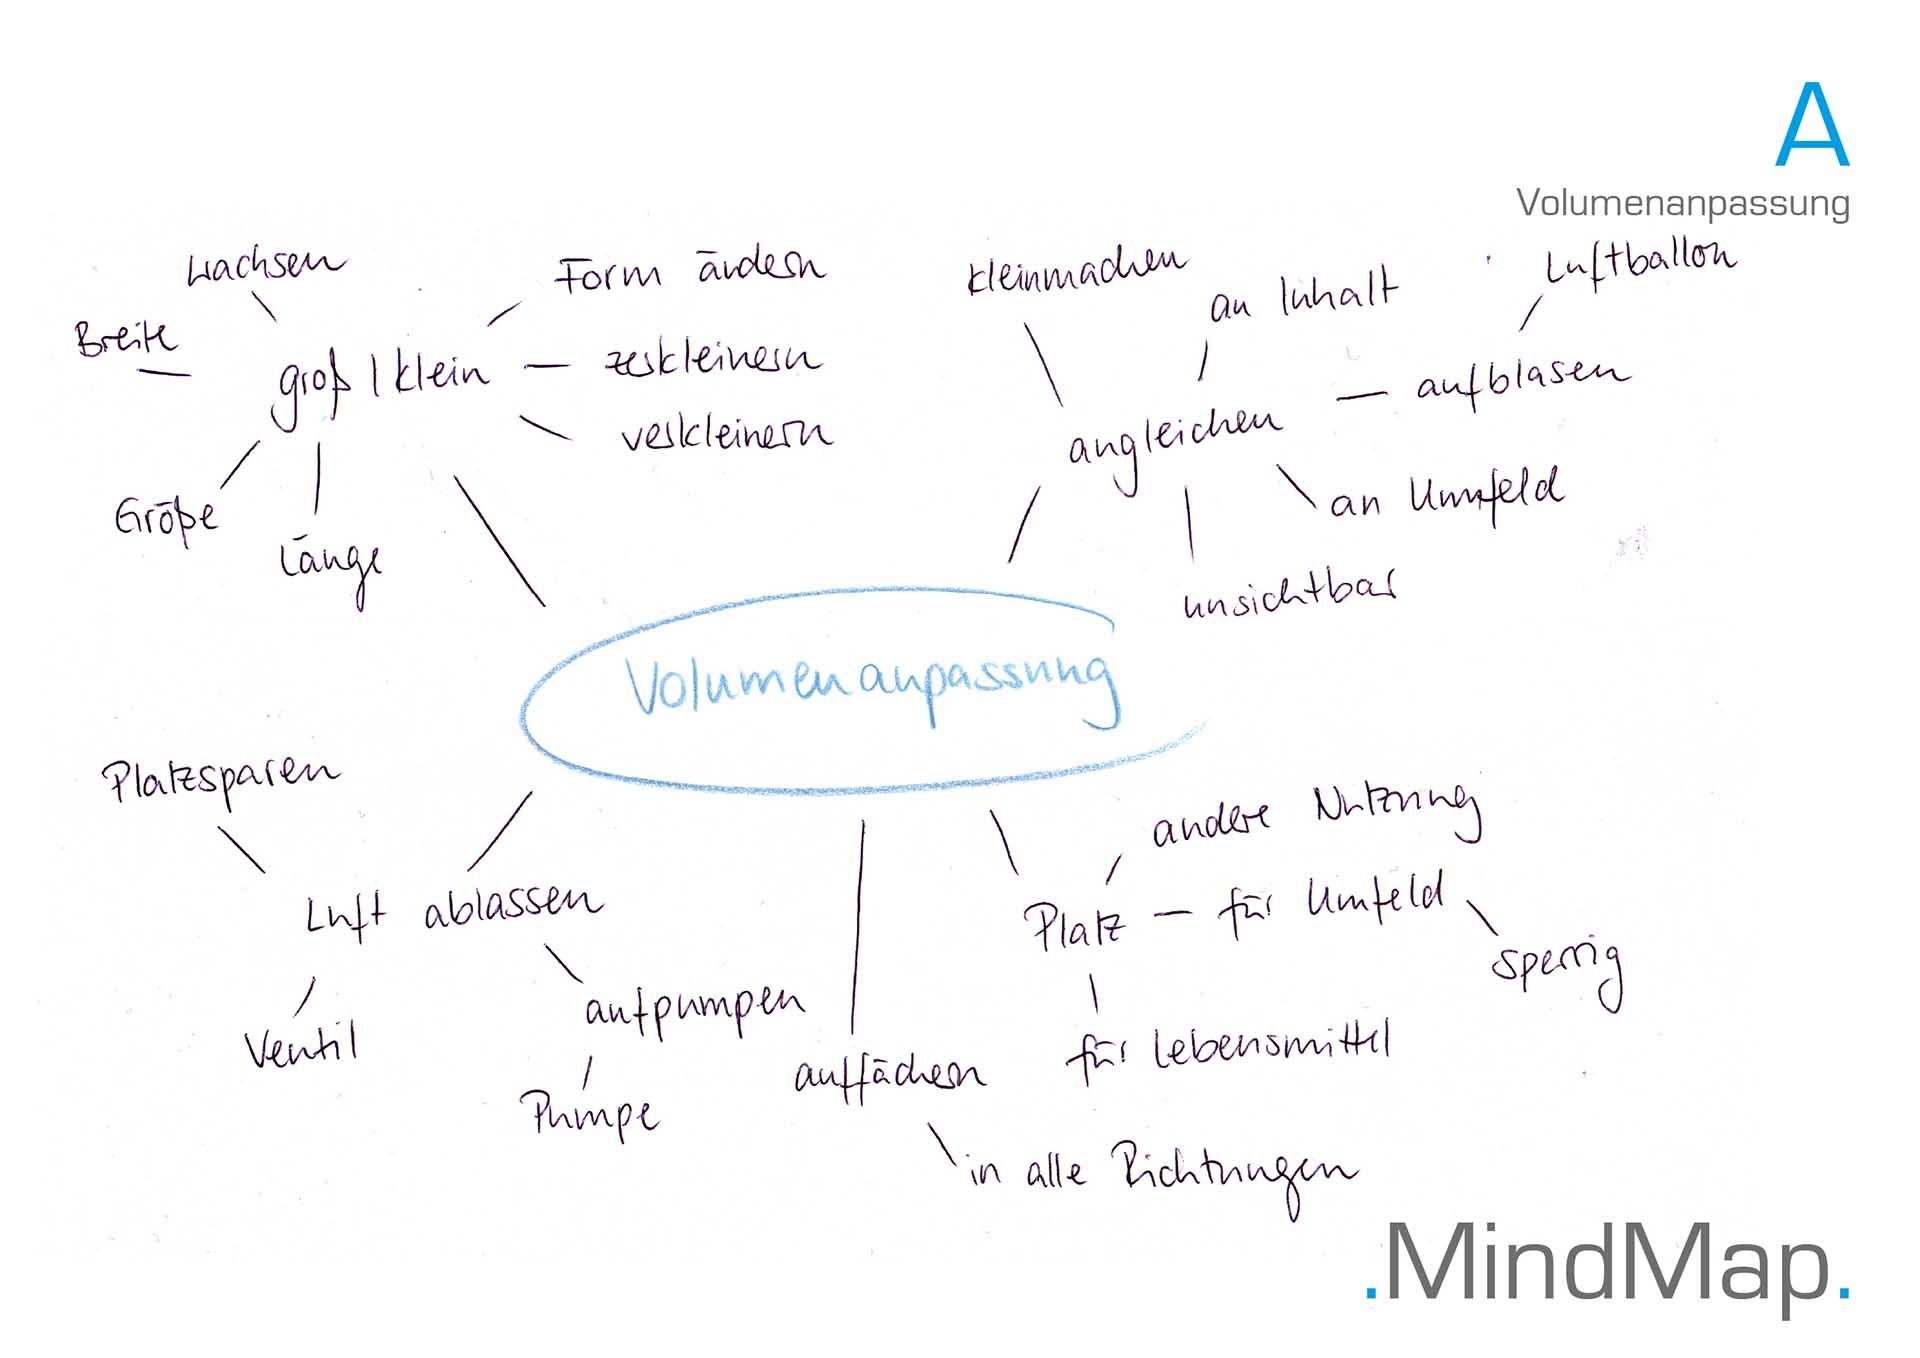 A
Volumenanpassung
wachsen
Form ändern
Breite
groß / klein
zerkleinern
verkleinern
Größe
Länge
kleinmachen
an Inhalt
Luftballon
angleichen
aufblasen
an Umfeld
unsichtbar
Volumenanpassung
Platzsparen
Luft ablassen
Ventil
aufpumpen
Pumpe
auffächern
in alle Richtungen
andere Nutzung
Platz
für Umfeld
sperrig
für Lebensmittel
.MindMap.